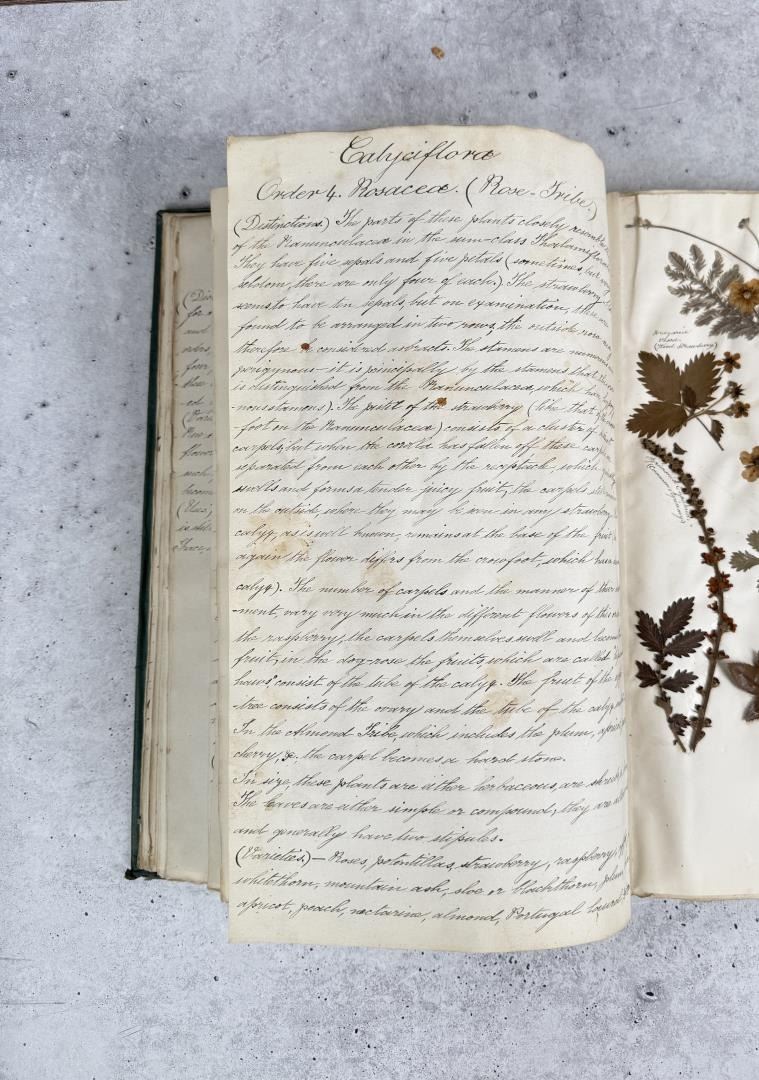 Calyciflora
Order 4. Rosacea. (Rose-Tribe.)
(Distinctions) The parts of these plants closely resemble
of the Ranunculacea in the sum-class Thalamiflora
They have five sepals and five petals (sometimes, but
seldom, there are only four of each.) The strawberry
seems to have ten sepals, but on examination, these are
found to be arranged in two rows, the outside row
therefore be considered as bracts. The stamens are
perigynous — it is principally by the stamens that
is distinguished from the Ranunculacea, which has
-nous stamens). The pistil of the strawberry (like that of
-foot on the Ranunculacea) consists of a cluster of
carpels, but when the corolla has fallen off these
separated from each other by the receptacle, which
swells and forms a tender juicy fruit, the carpels
on the outside, where they may be seen in any strawberry
calyx, as is well known, remains at the base of the fruit
again the flower differs from the crowfoot, which has
calyx). The number of carpels and the manner of their
-ment, vary very much in the different flowers of this
the raspberry, the carpels themselves swell and become
fruit; in the dog-rose the fruits, which are called
haws", consist of the tube of the calyx. The fruit of the
-tree consists of the ovary and the tube of the calyx,
In the Almond Tribe, which includes the plum,
cherry, &c, the carpel becomes a hard stone.
In size, these plants are either herbaceous, are
The leaves are either simple or compound; they are
and generally have two stipules.
(Varieties) — Roses, potentillas, strawberry, raspberry,
whitethorn, mountain ash, sloe or blackthorn,
apricot, peach, nectarine, almond, Portugal laurel